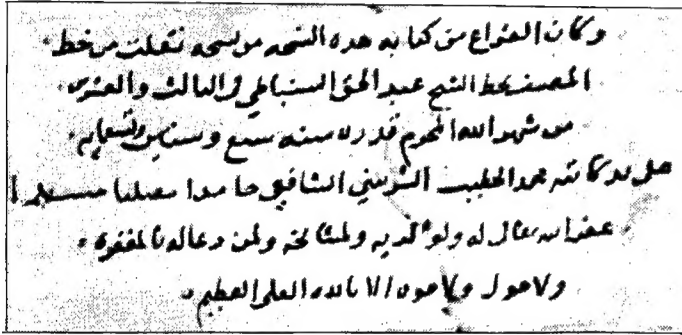 وكان الفراغ من كتابه هده النسخه من نسخه نقلت من خط
المصنف بخط الشيخ عبد الحق السنباطي في الثالث والعشرين
من شهر الله المحرم سنه سبع وستين وتسعمايه
على يد كاتبه محمد الخطيب الشربيني الشافعي حامدا مصليا مسلما
غفر الله تعالى له ولوالديه ولمشايخه ولمن دعا له بالمغفره
ولا حول ولا قوه الا بالله العلى العظيم